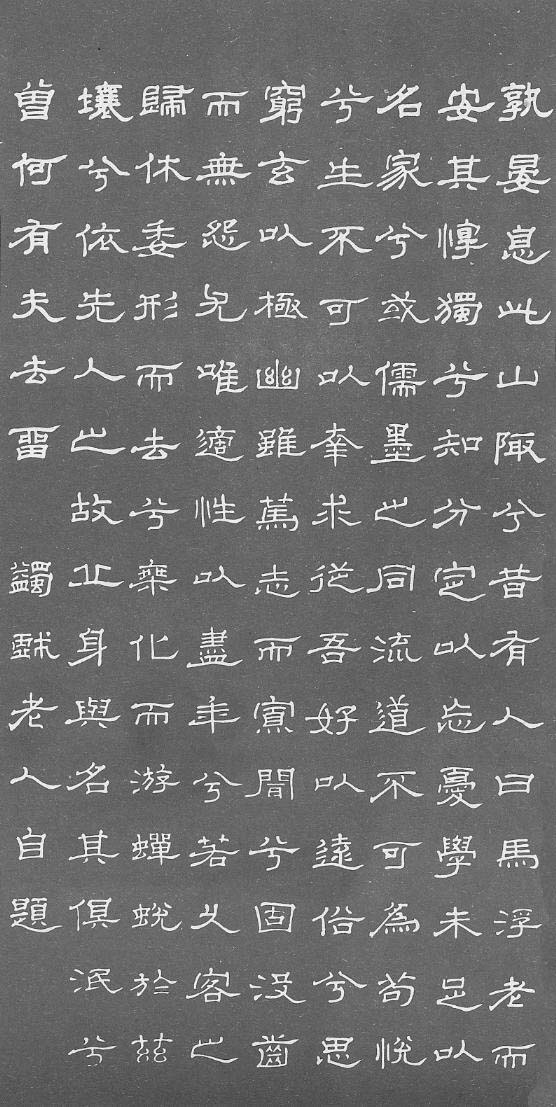 孰晏息此山陬兮昔有人曰馬浮老而
安其惸獨兮知分定以忘憂學未足以
名家兮或儒墨之同流道不可為苟悅
兮生不可以幸求從吾好以遠俗兮思
窮玄以極幽雖篤志而寡聞兮固沒齒
而無怨兄唯適性以盡年兮若久客之
歸休委形而去兮乘化而游蟬蛻於茲
壤兮依先人之故止身與名其俱泯兮
曾何有夫去留 蠲戲老人自題